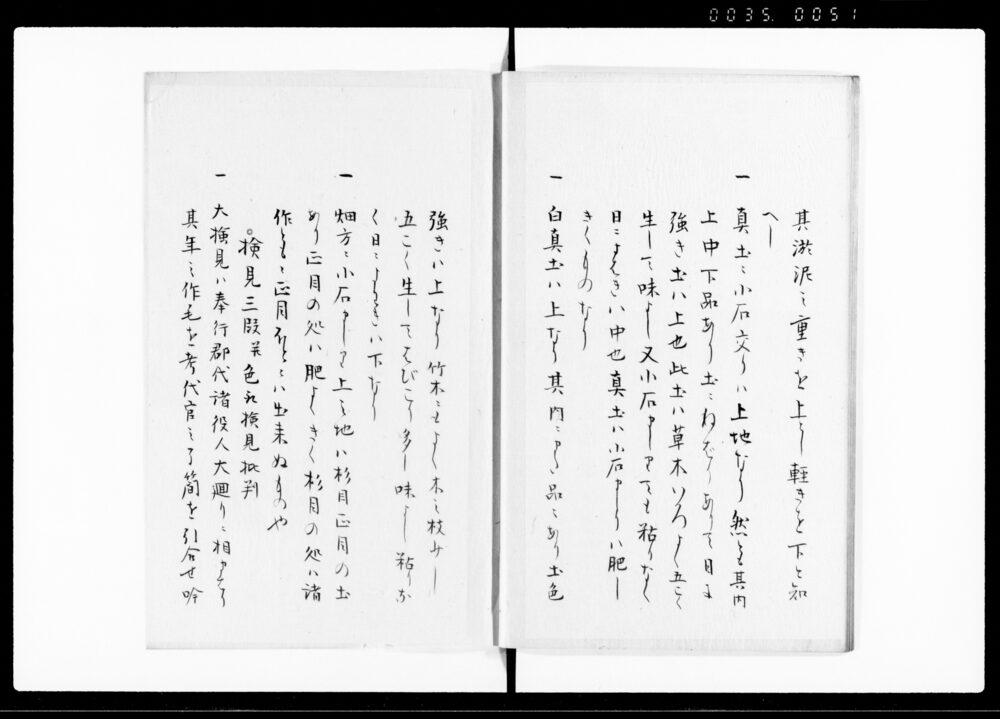 0035. 0051
其淤泥之重きを上とし軽きを下と知
へし
一 真土ニ小石交りハ上地なり然とも其内
上中下品あり土ニねばりありて目に
強き土ハ上也此土ハ草木いろよく五こく
生して味よし又小石ましりても粘りなく
日によはきハ中也真土ハ小石ましりハ肥し
きくものなり
一 白真土ハ上なり其内ニ品々あり土色
強きハ上なり竹木にもよく木之枝少し
五こく生してはびこり多し味よし粘りな
く日によはきハ下なり
一 畑方ニ小石ましり上之地ハ杉目正目の土
あり正目の処ハ肥よくきく杉目の処ハ諸
作ともニ正目ほとニハ出来ぬものや
。検見三段并色取検見批判
一 大検見ハ奉行郡代諸役人大廻りニ相
其年之作毛を考代官之了簡を引合せ吟